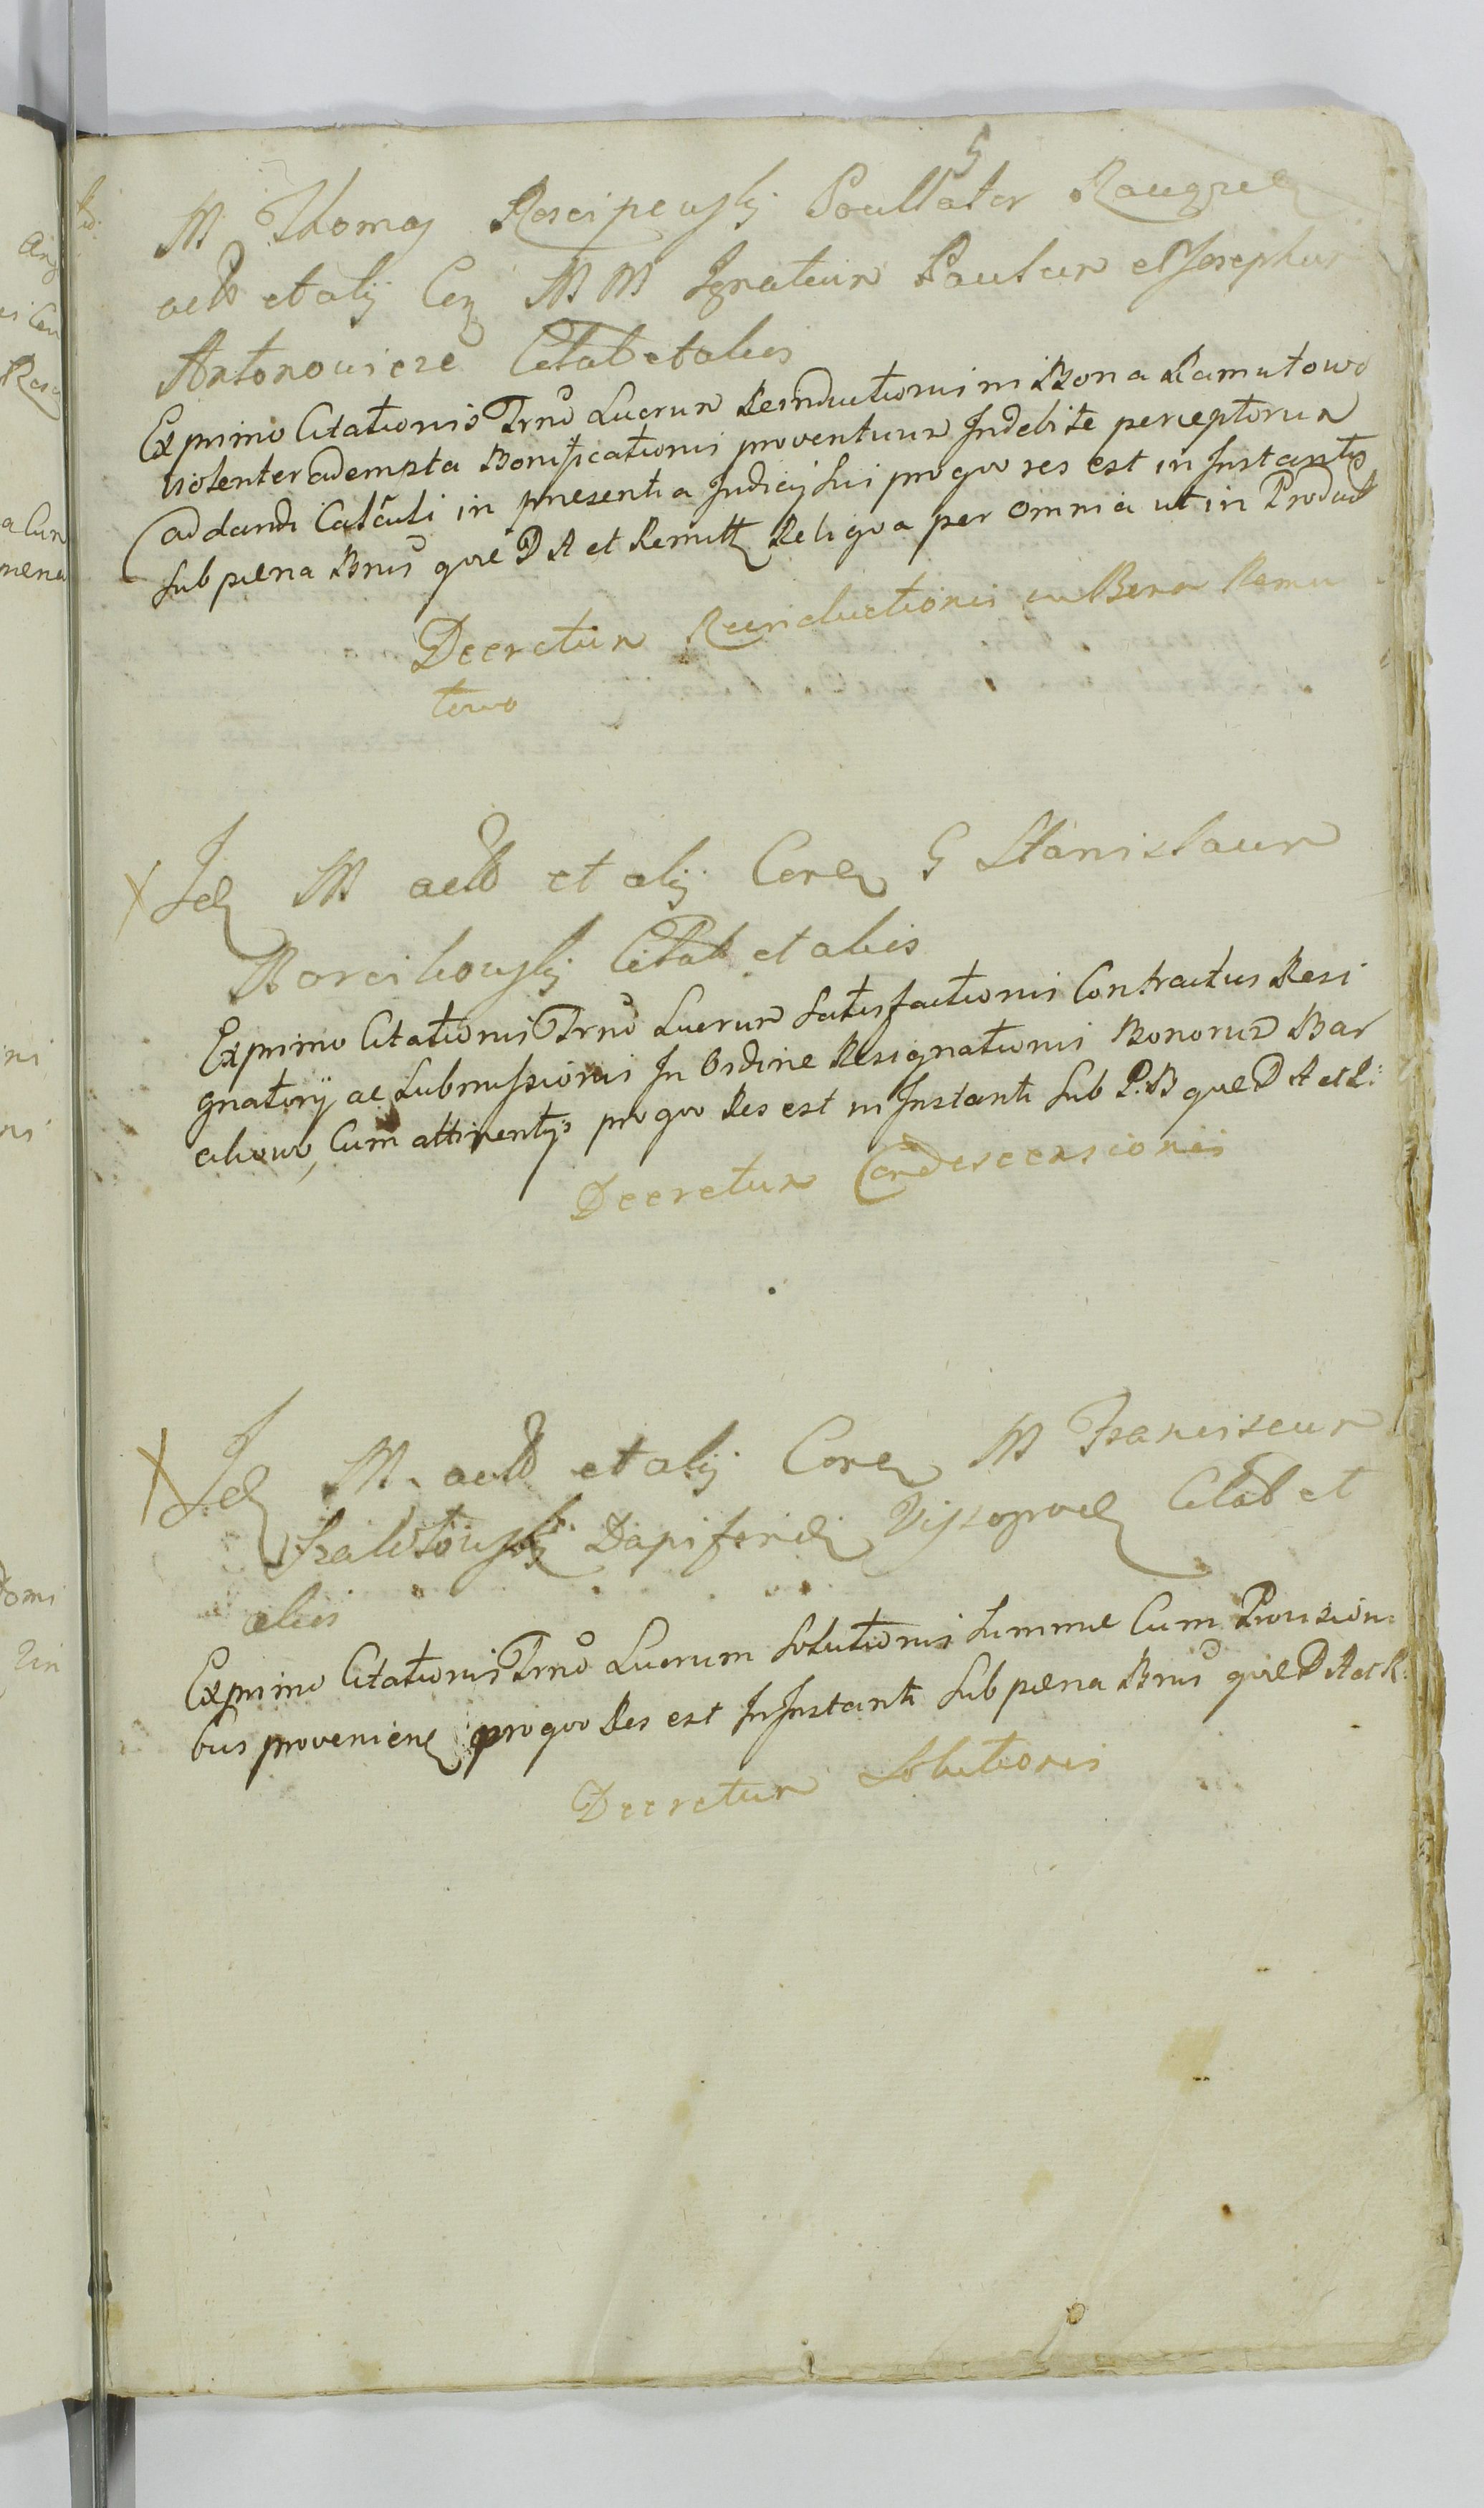 5
M Thomas Roscipewskj Pocillator
actt et alij Con MM Ignatium Paulum et Josephum
Antonowicze Citat et alios
Ex primo Citationis Trno Lucrum Reinductionis in Bona Ramutowo
violenter adempta Bonificationis proventuum Indebite perceptorum
ad dandi Calculi in presentia Judicij Sui pro quo res est in Instantis
sub pœna Bnis quæ D A et Remitt Reliqua per omnia ut in Product
Decretum Reinductionis in Bona Ramu
towo
X Id M actt et alij Con G Stanislaum
Marcihowskj Citat et alios
Ex primo Citationis Trno Lucrum Satisfactionis Contractus Resi
gnatorij ac Submissionis In Ordine Resignationis Bonorum Bar
cihowo, Cum attinentijs pro quo Res est in Instanti Sub P. B quæ D A et R:
Decretum Condescensionis
X Id M actt et alij Con M Franciscum
Dapiferid Citat et
alios
Ex primo Citationis Trno Lucrum Solutionis Summæ Cum Provision:
bus provenien pro quo Res est In Instanti Sub pœna Bnis quæ D A et R:
Decretum Solutionis